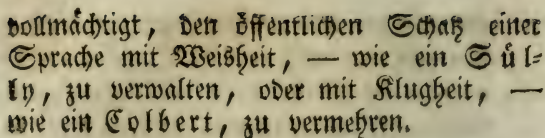 vollmächtigt, den öffentlichen Schatz einer
Sprache mit Weisheit, — wie ein Sül⸗
ly, zu verwalten, oder mit Klugheit, —
wie ein Colbert, zu vermehren.